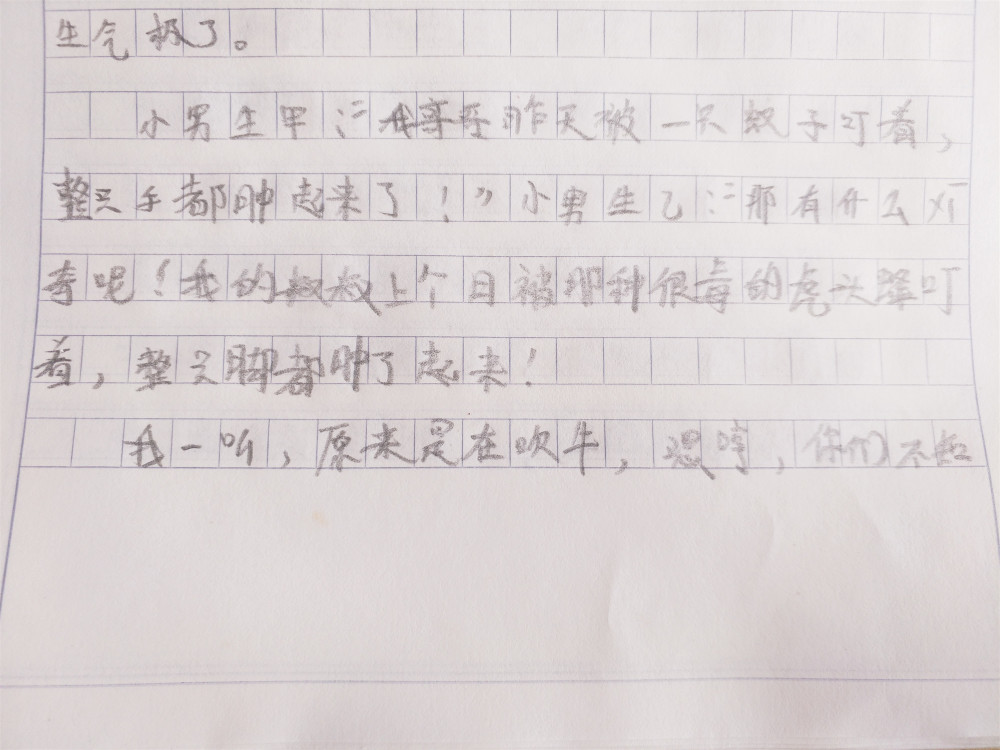 生气极了。
小男生甲:“我哥哥昨天被一只蚊子叮着,
整只手都肿起来了!”小男生乙:“那有什么好
奇呢!我的叔叔上个日被那种很毒的虎头蜂叮
着,整只脚都肿了起来!
我一听,原来是在吹牛,想哼,你们不知